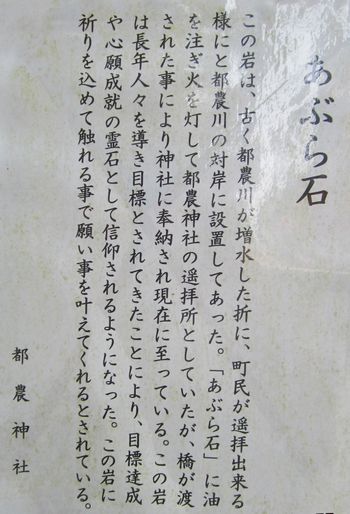 あぶら石
この岩は、古く都農川が増水した折に、町民が遥拝出来る
様にと都農川の対岸に設置してあった。「あぶら石」に油
を注ぎ火を灯して都農神社の遥拝所としていたが、橋が渡
された事により神社に奉納され現在に至っている。この岩
は長年人々を導き目標とされてきたことにより、目標達成
や心願成就の霊石として信仰されるようになった。この岩に
祈りを込めて触れる事で願い事を叶えてくれるとされている。
都農神社